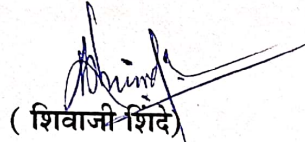 ( शिवाजी शिंदे)